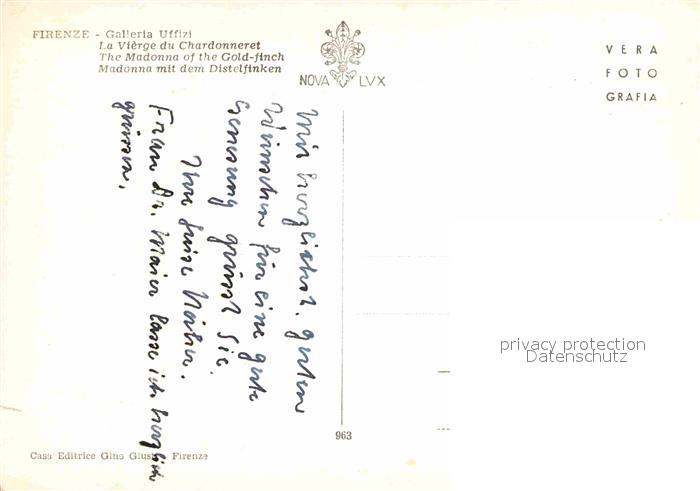 FIRENZE - Galleria Uffizi
La Vièrge du Chardonneret
The Madonna of the Gold-finch
Madonna mit dem Distelfinken
NOVA LVX
VERA
FOTO
GRAFIA
Mit herzlichst. guten
Wünschen für eine gute
Genesung grüsst Sie
Ihre Luise
Frau Dr. Maier lasse ich herzlich
grüssen.
privacy protection
Datenschutz
963
Casa Editrice Gino Giusti - Firenze